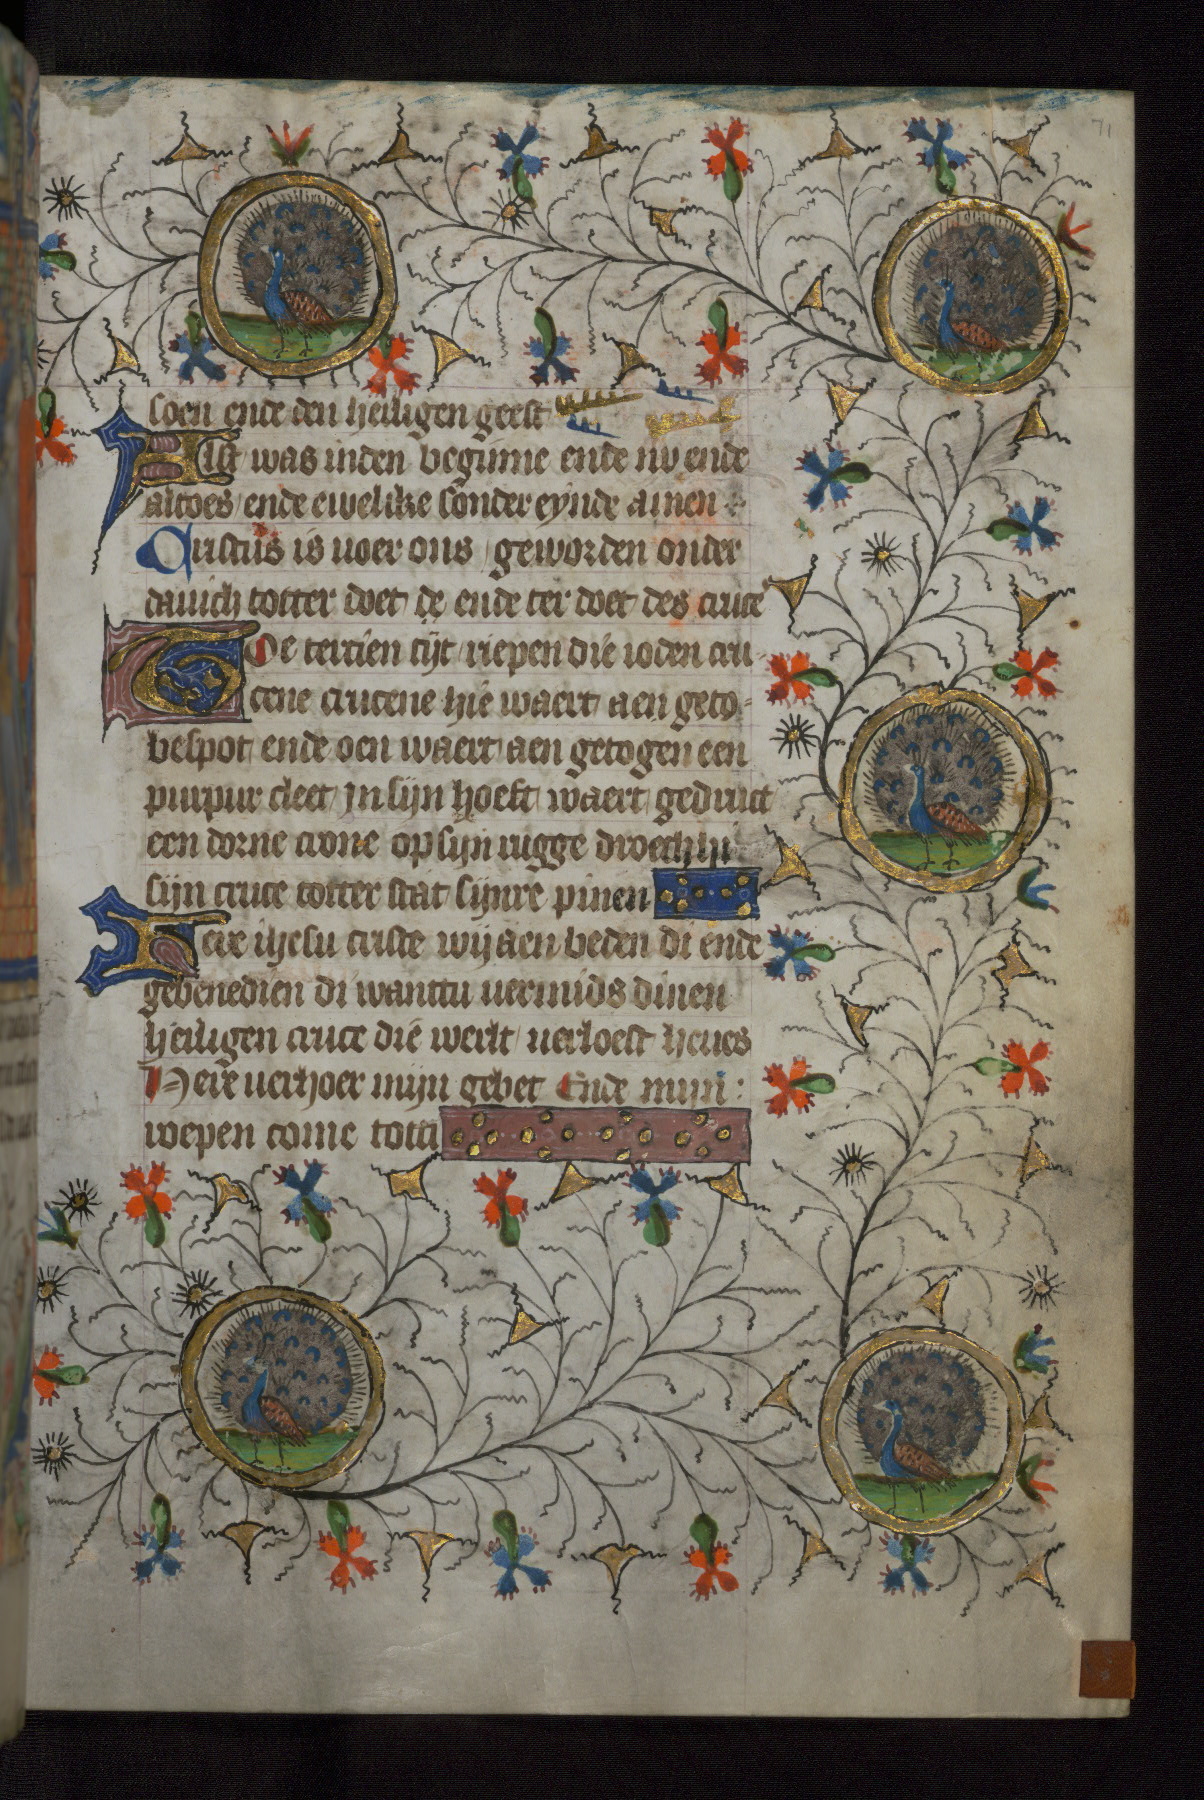 71
soen ende den heiligen geest
Alst was inden beginne ende nv ende
altoes ende ewelike sonder eynde amen
Cristus is voer ons geworden onder
danich totter doet de ende ter doet des cruce
Toe tercien tijt riepen die ioden cru
cene crucene hie waert aen geto
bespot ende oen waert aen getogen een
purpur cleet Jn sijn hoeft waert gedruct
een dorne crone op sijn rugge droech hi
sijn cruce totter stat sijnre pinen
Here ihesu criste wij aen beden di ende
gebenedien di wanttu vermids dinen
heiligen cruce die werlt verloest heues
Here verhoer mijn gebet Ende mijn
roepen come totti